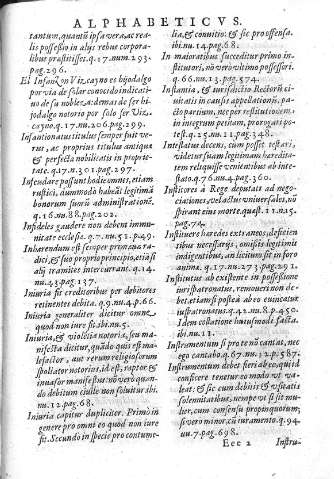 ALPHABETICVS.
tantum, quantũ ipsa vera, ac rea-
lis possessio in alijs rebus corpora-
libus præstitisset. q.17.num.293.
pag.296.
El Infançon Vizcayno es hijodalgo
por via de solar conocido indicati-
uo de su nobleza: demas de ser hi-
jodalgo notorio por solo ser Viz-
cayno. q.17. nu.206.pag.299.
semper fuit ve-
rus, ac proprius titulus antiquæ
& perfecta nobilitatis in proprie-
tate. q.17.n.301.pag.297.
Infeudare possunt hodie omnes, etiam
rustici, dummodò habeãt legitimã
bonorum suorũ administrationẽ.
q.16.nu.88.pag.202.
Infideles gaudere non debent immu-
nitate ecclesiæ. q.7.nu.51.p.49.
Inhærendum est semper primæ ra-
dici, & suo proprio principio, etiã si
alij tramites intercurrant. q.14.
nu.43.pag.137.
Iniuria fit creditoribus per debitores
retinentes debita. q.9.nu.4.p.66.
Iniuria generaliter dicitur omne
quod non iure fit. ibi.nu.5.
Iniuria, & violẽtia notoria, seu ma-
nifesta dicitur, quãdo quis est ma-
lefactor, aut rerum religiosorum
spoliator notorius, id est, raptor &
inuasor manifestus: nõ verò quan-
do debitum ciuile non soluitur. ibi.
nu.12.pag.68.
Iniuria capitur dupliciter. Primò in
genere pro omni eo quod non iure
fit. Secundo in specie pro contume-
lia, & conuitio: & sic pro offensa.
ibi.nu.14.pag.68.
In maioratibus succeditur primo in-
stitutori, nõ verò vltimo possessori.
q.66.nu.13.pag.574.
Instantia, & iurisdictio Rectoris ci-
uitatis in causis appellationis, pa-
cto partium, nec per restitutionem
in integrum petitam, prorogari po-
test. q.25.nu.11.pag.348.
Intestatus decens, cum posset testari,
videtur suam legitimam heredita-
tem reliquisse venientibus ab inte-
stato. q.76.nu.4.pag.360.
Institores à Rege deputati ad nego-
ciationes, vel actus vniuersales, nõ
spirant eius morte. quæst.11.n.15.
pag.74.
Instituere hæredes extraneos, de
tibus necessarijs, omissis legitimis
indigentibus, an licitum sit in foro
animæ. q.17.nu.273.pag.291.
Institutus ab existente in possessione
iurispatronatus, remoueri non de-
bet, etiamsi postea ab eo euincatur
iuspatronatus. q.42.nu.8.p.450.
Idem collatione huiusmodi facta.
ibi.nu.11.
Instrumentum si pro te nõ cantas, nec
ego cantabo. q.67.nu.12.p.587.
Instrumentum debet fieri de eo, quid
conficere tenetur eo modo vt va-
leat: & sic cum debitis & vsitatis
solemnitatibus; nempe vt si sit mu-
lier, cum consensu propinquorum,
si verò minor, cũ iuramento. q.94.
nu.7.pag.698.
Ecc 2 Instru-